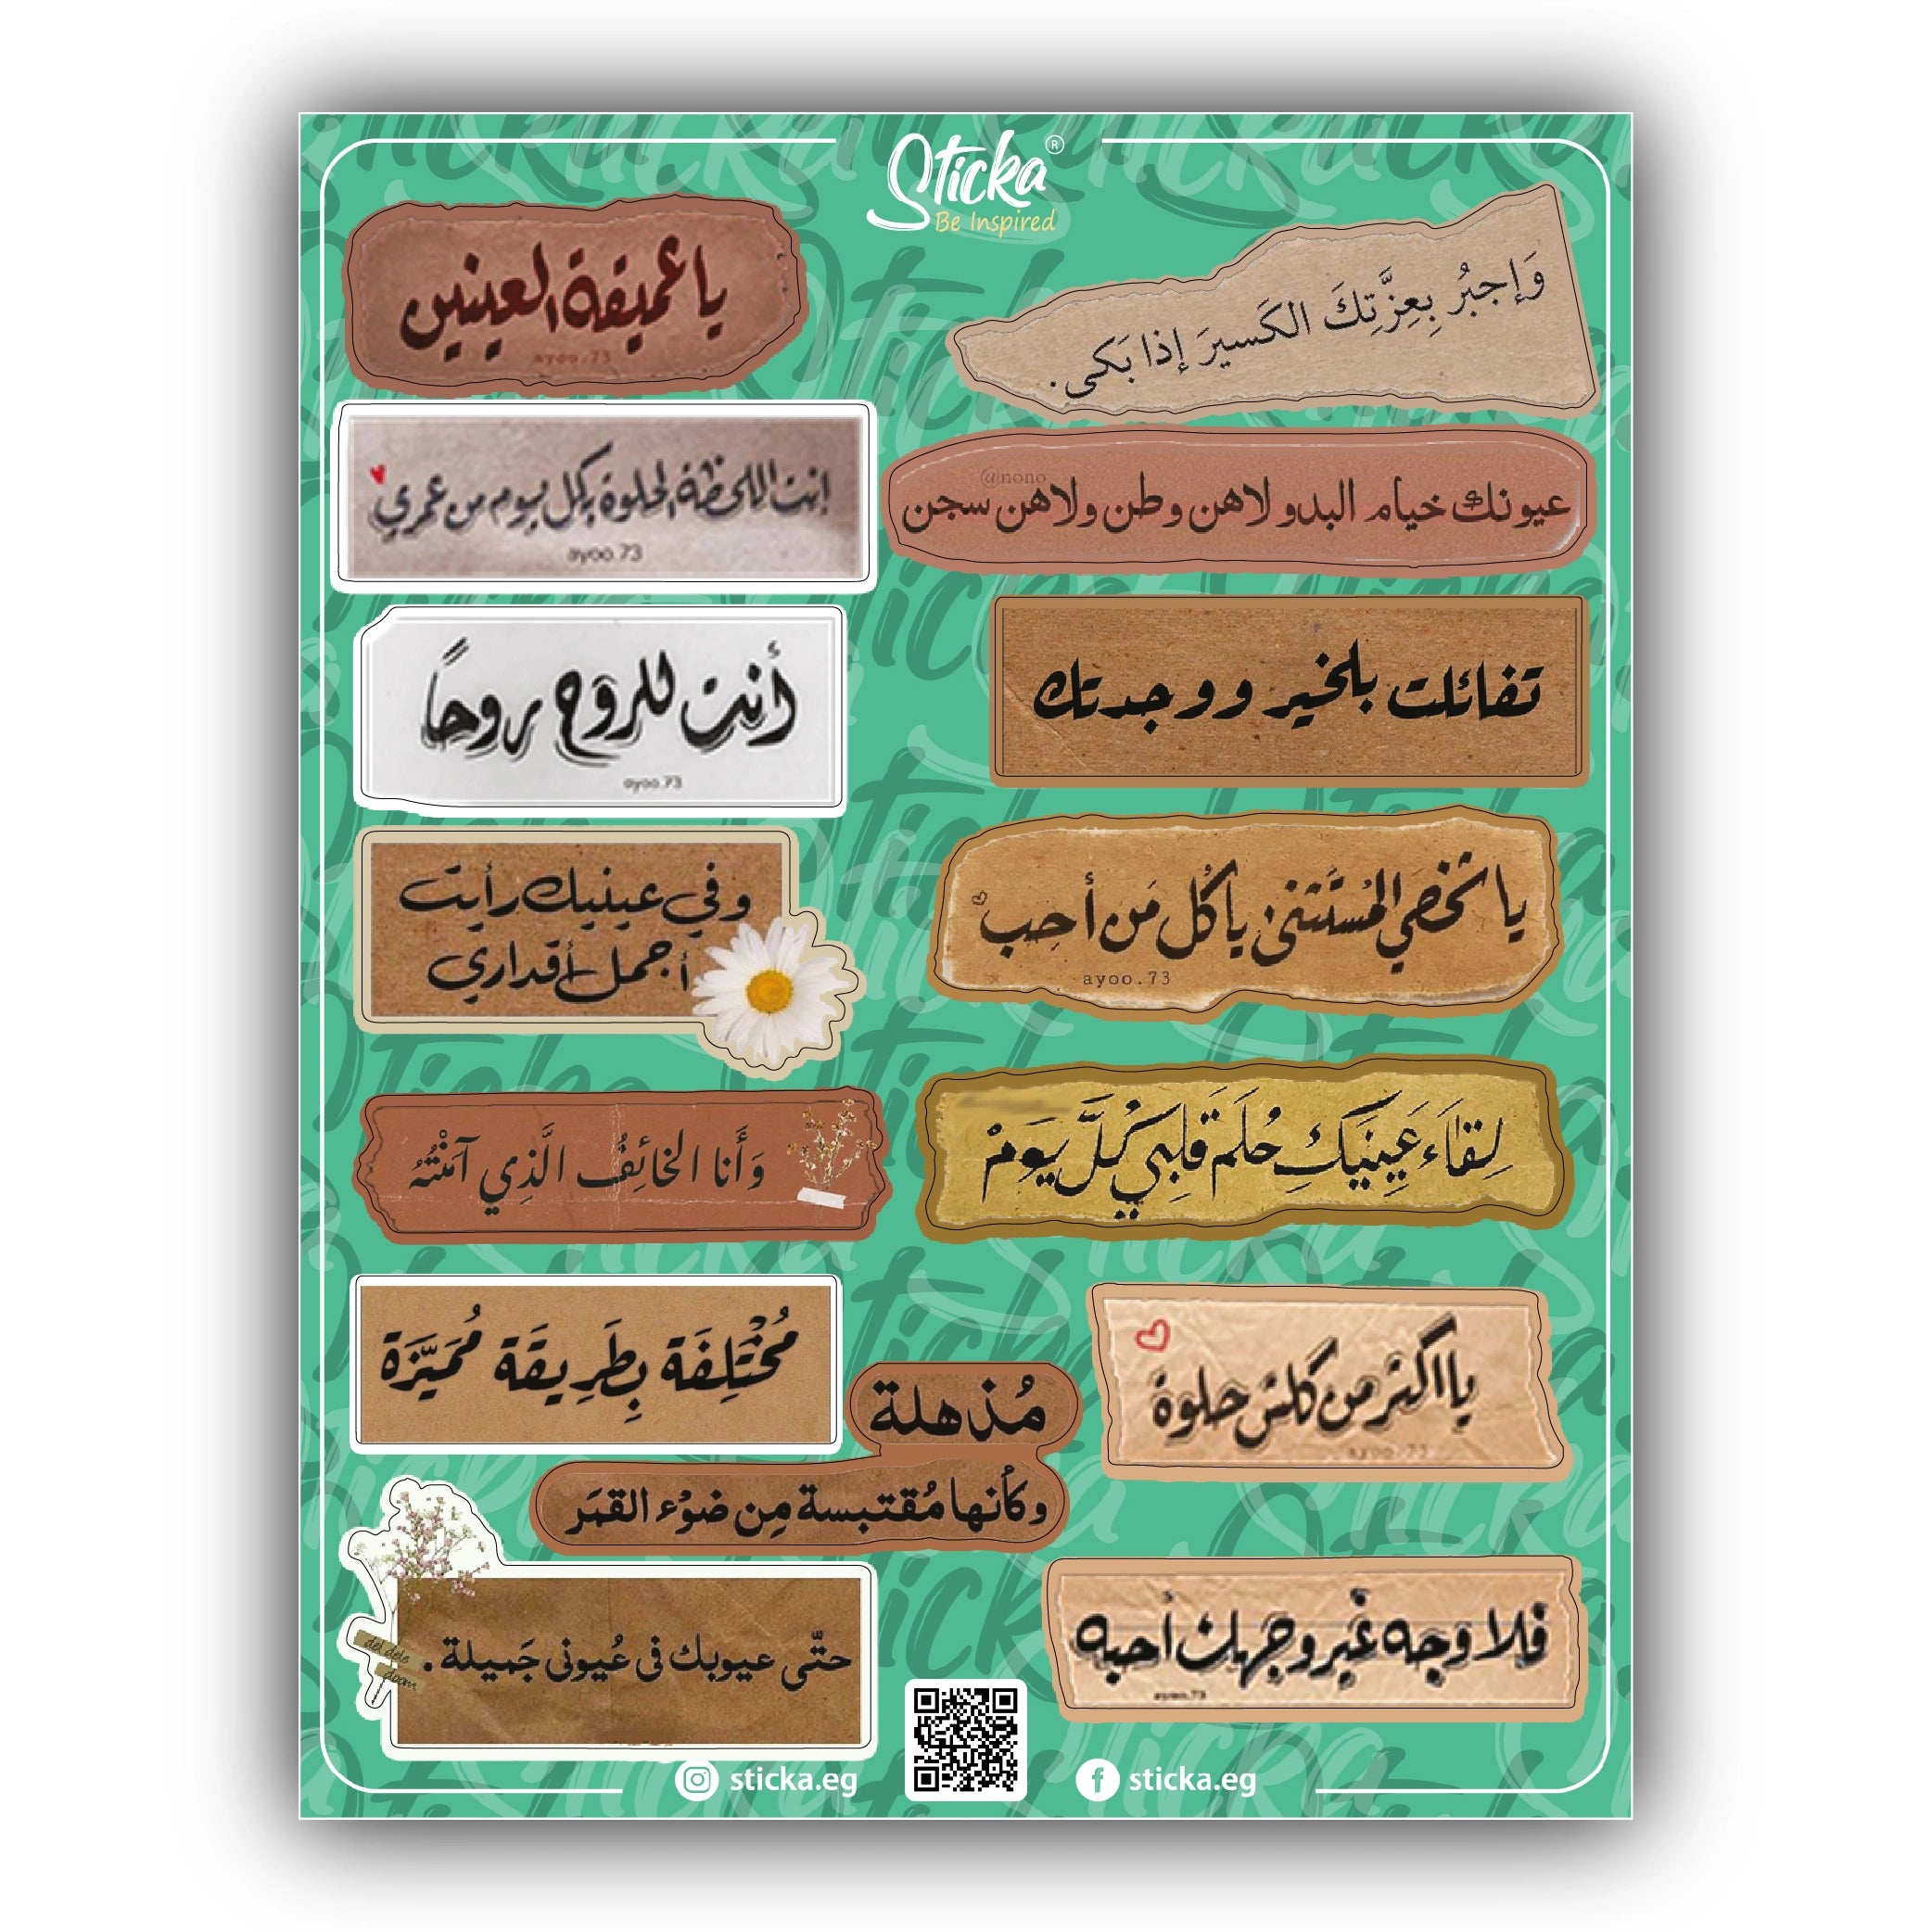 Sticka®
Be Inspired
يا عميقة العينين
ayoo.73
وَإجبُر بِعِزَّتِكَ الكَسيرَ إذا بَكى.
انت اللحظة الحلوة بكل يوم من عمري
ayoo.73
@nono
عيونك خيام البدو لاهن وطن ولاهن سجن
أنت للروح روحاً
ayoo.73
تفائلت بلخير ووجدتك
وفي عينيك رأيت
أجمل أقداري
يا شخصي المُستثنى يا كُل مَن أحِب
ayoo.73
وَأَنا الخائِفُ الَّذِي آمَنْتُهُ
لِقاءَ عَينَيكِ حُلمَ قَلبي كُلَّ يَومْ
مُخْتَلِفَة بِطَرِيقَة مُمَيَّزَة
يا اكثر من كلش حلوة
ayoo.73
مُذهلة
وكأنها مُقتبسة مِن ضوْء القمَر
حتّى عيوبك فى عُيونى جَميلة .
فلا وجه غير وجهك أحبه
ayoo.73
sticka.eg
sticka.eg